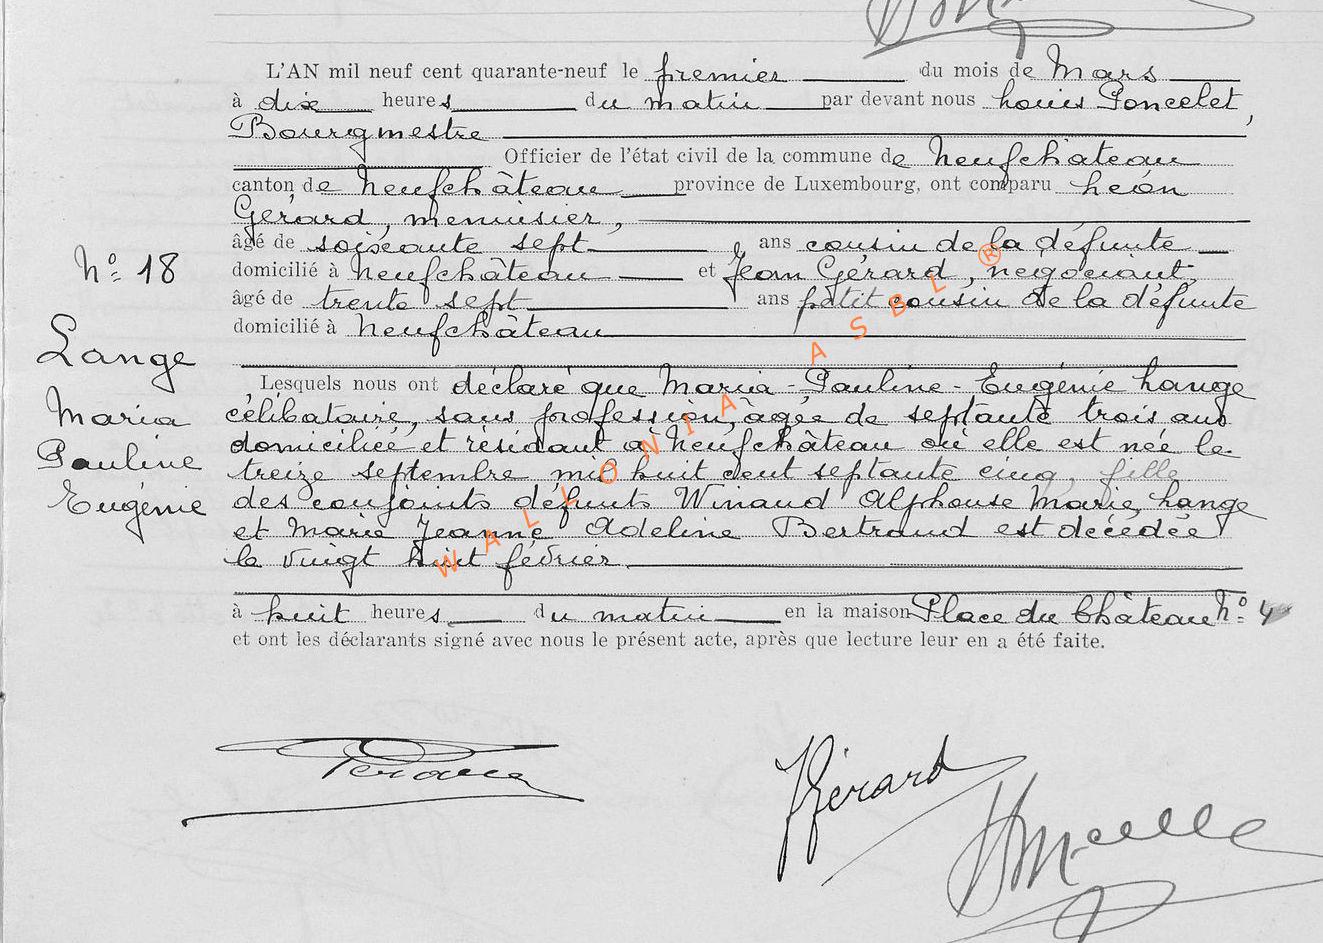 L'AN mil neuf cent quarante-neuf le premier du mois de Mars
à dix heures du matin par devant nous Louis Poncelet,
Bourgmestre
Officier de l'état civil de la commune de Neufchâteau
canton de Neufchâteau province de Luxembourg, ont comparu Léon
Gérard, menuisier,
âgé de soixante sept ans cousin de la défunte
N° 18
domicilié à Neufchâteau et Jean Gérard, négociant,
âgé de trente sept ans petit cousin de la défunte
domicilié à Neufchâteau
Lange
Maria
Pauline
Eugénie
Lesquels nous ont déclaré que Maria-Pauline-Eugénie Lange
célibataire, sans profession, âgée de septante trois ans
domiciliée et résidant à Neufchâteau où elle est née le
treize septembre mil huit cent septante cinq, fille
des conjoints défunts Winand Alphonse Marie Lange
et Marie Jeanne Adeline Bertrand est décédée
le vingt huit février
à huit heures du matin en la maison Place du Château N° 4
et ont les déclarants signé avec nous le présent acte, après que lecture leur en a été faite.
JGérard
WALLONIA ASBL ®